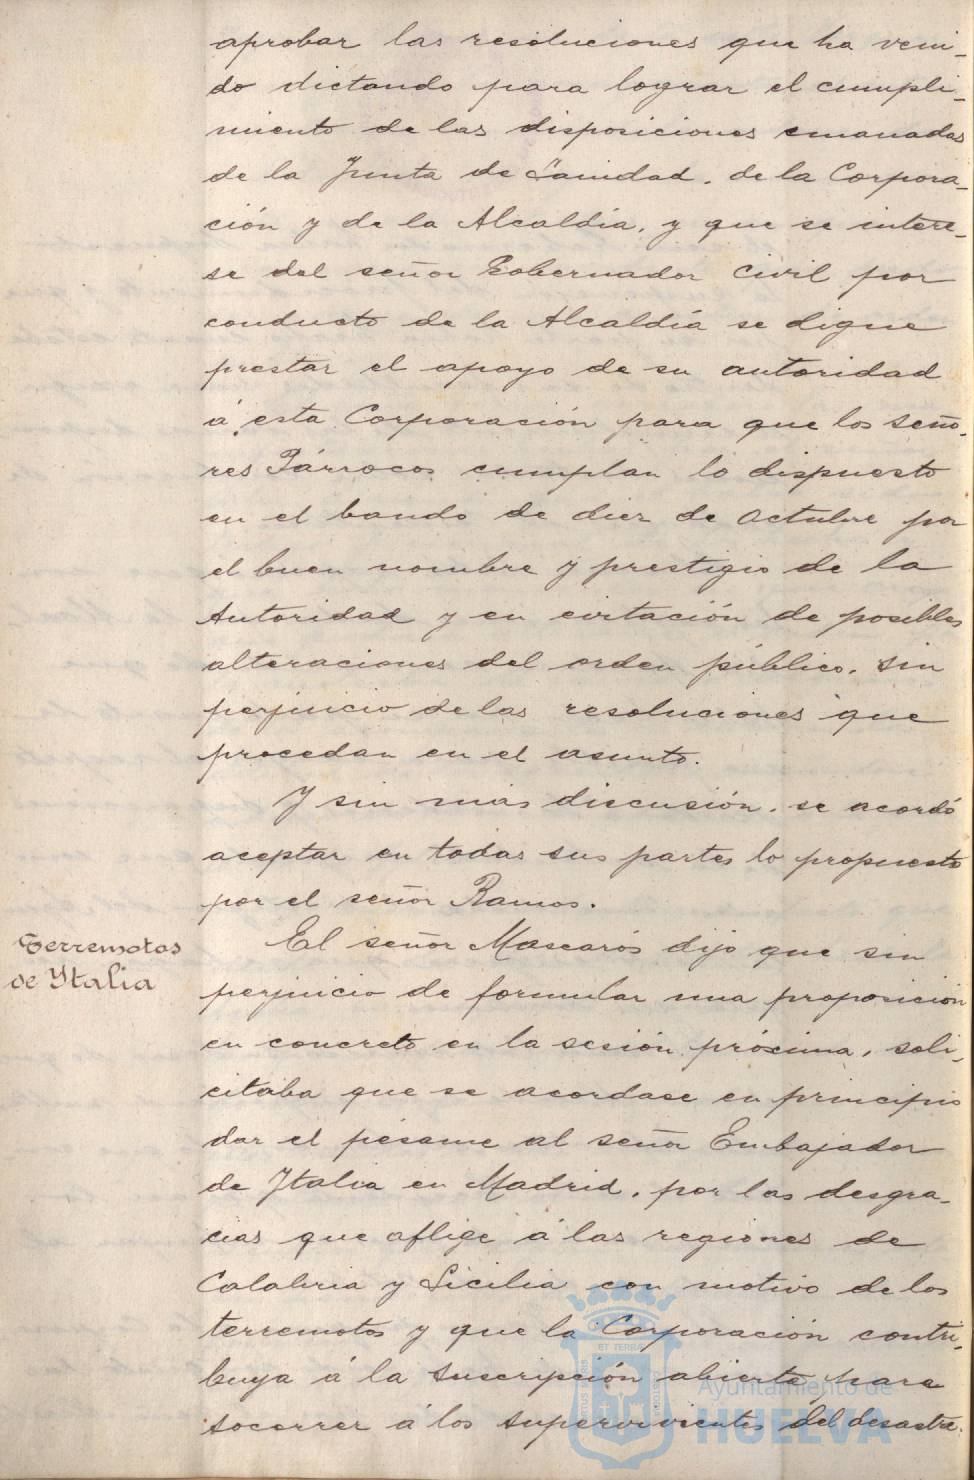 aprobar las resoluciones que ha veni-
do dictando para lograr el cumpli-
miento de las disposiciones emanadas
de la Junta de Sanidad, de la Corpora-
ción y de la Alcaldía, y que se intere-
se del señor Gobernador Civil por
conducto de la Alcaldía se digne
prestar el apoyo de su autoridad
á esta Corporación para que los seño-
res Párrocos cumplan lo dispuesto
en el bando de diez de Octubre por
el buen nombre y prestigio de la
Autoridad y en evitación de posibles
alteraciones del orden público, sin
perjuicio de las resoluciones que
procedan en el asunto.
Y sin más discusión, se acordó
aceptar en todas sus partes lo propuesto
por el señor Ramos.
Terremotos
de Ytalia
El señor Mascarós dijo que sin
perjuicio de formular una proposición
en concreto en la sesión próxima, soli-
citaba que se acordase en principio
dar el pésame al señor Embajador
de Ytalia en Madrid, por las desgra-
cias que aflige á las regiones de
Calabria y Sicilia con motivo de los
terremotos y que la Corporación contri-
buya á la suscripción abierta para
socorrer á los supervivientes del desastre.
Ayuntamiento de
HUELVA